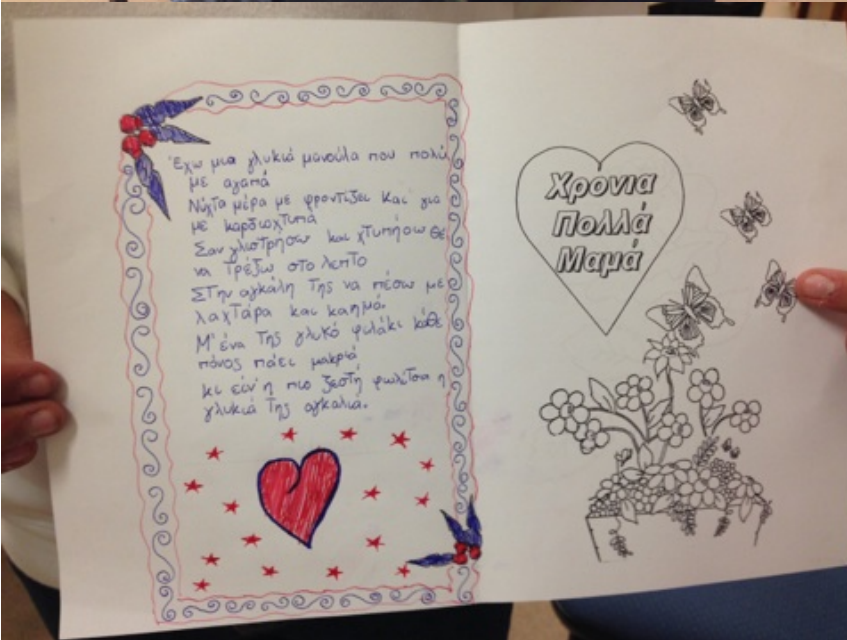 Έχω μια γλυκιά μανούλα που πολύ
με αγαπά
Νύχτα μέρα με φροντίζει και για
με καρδιοχτυπά
Σαν γλιστρήσω και χτυπήσω θε
να τρέξω στο λεπτό
Στην αγκάλη της να πέσω με
λαχτάρα και καημό.
Μ' ένα της γλυκό φιλάκι κάθε
πόνος πάει μακριά
κι είν' η πιο ζεστή φωλίτσα η
γλυκιά της αγκαλιά.
Χρονια
Πολλά
Μαμά